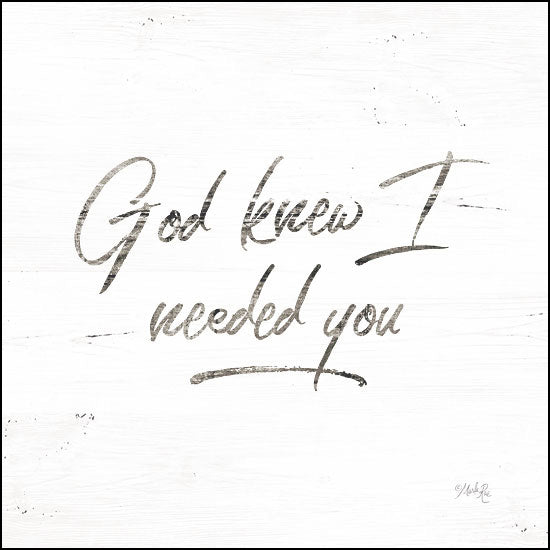 God knew I
needed you
© Marla Rae